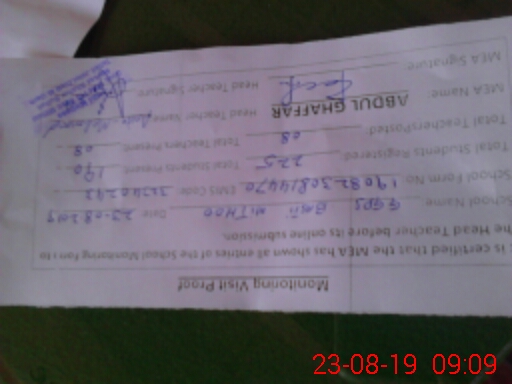 Monitoring Visit Proof
is certified that the MEA has shown all entries of the School Monitoring Form to
the Head Teacher before its online submission.
School Name GGPS Basti MITHOO Date 23-08-2019
School Form No 190823081 4470 EMIS Code
Total Students Registered 225 Total Students Present 190
Total Teachers Posted 08 Total Teachers Present 08
MEA Name: ABDUL GHAFFAR Head Teacher Name
MEA Signature: Head Teacher Signature
23-08-19 09:09